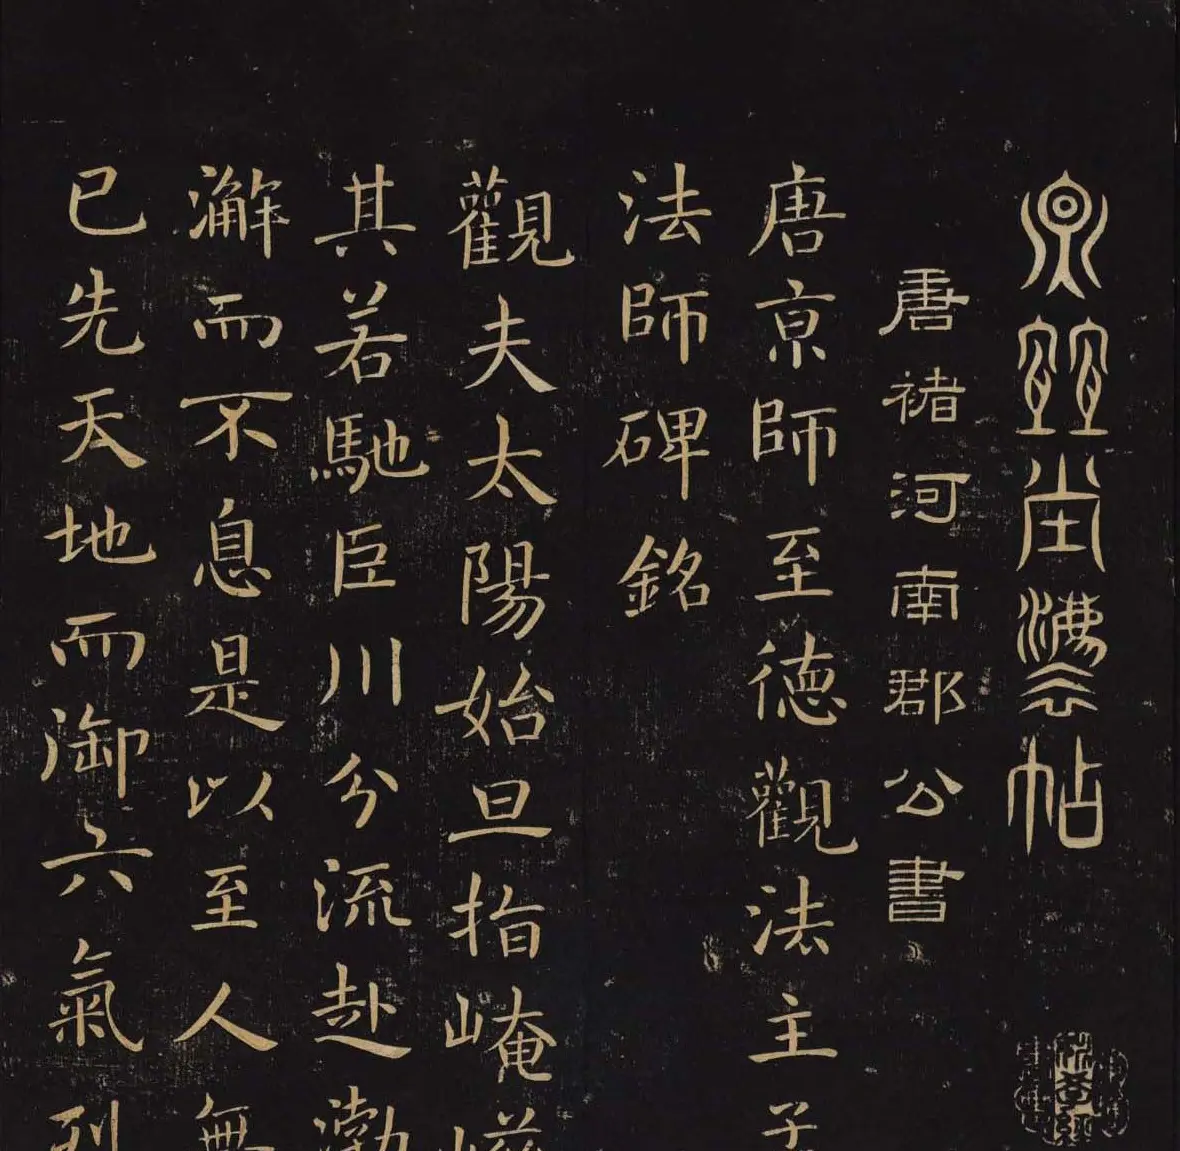 堂法帖
唐褚河南郡公書
唐京師至德觀法主
法師碑銘
觀夫太陽始旦指崦嵫
其若馳臣川分流赴渤
澥而不息是以至人無
已先天地而御六氣列